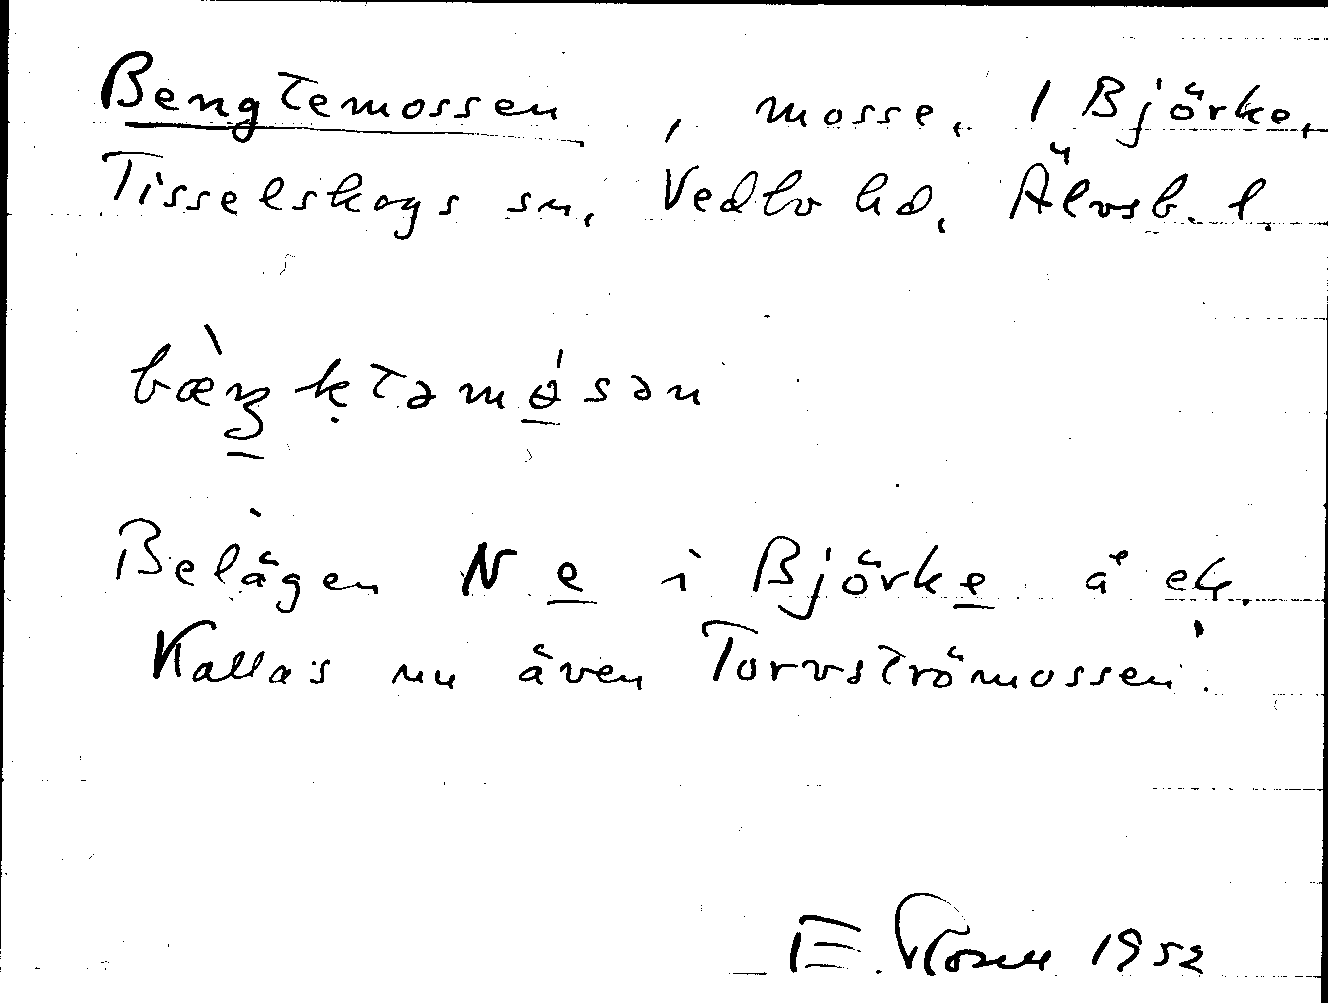 Bengtemossen, mosse. 1 Björke,
Tisselskogs sn, Vedbo hd, Älvsb. l.
Belägen N e i Björke å eg.
Kallas nu även Torvströmossen.
E. 1952